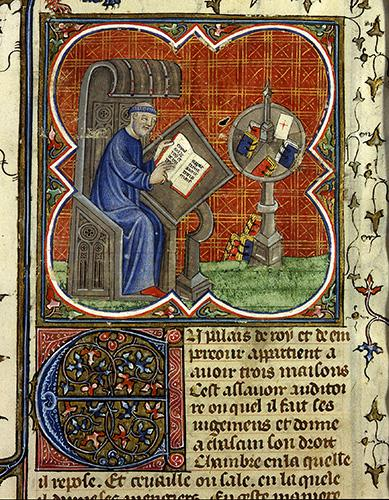 EN palais de roy et de em
pereour appartient a
auoir trois maisons
Cest assauoir auditoi
re ou quel il fait ses
iugemens et donne
a chascun son droit
Chambre en la quelle
il repose. Et cenaille ou sale, en la quele